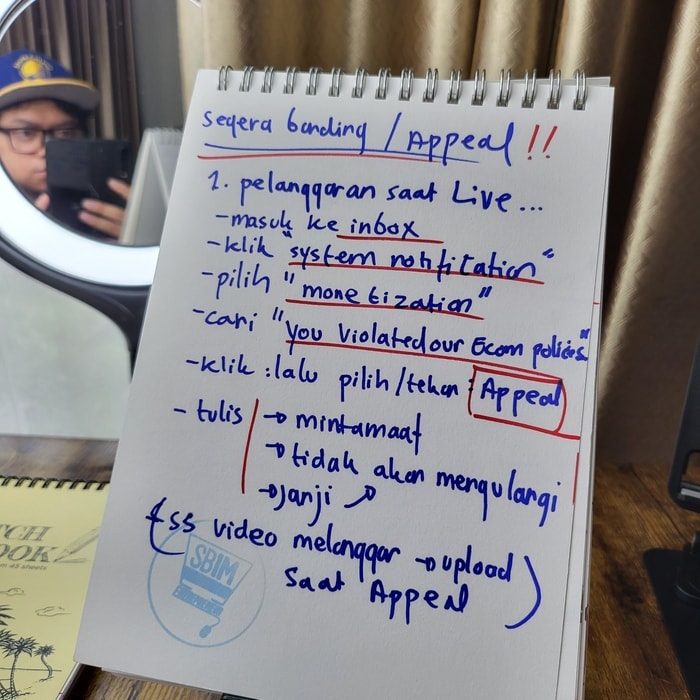 segera banding / Appeal !!
1. pelanggaran saat Live...
- masuk ke inbox
- klik "system notification"
- pilih "monetization"
- cari "you Violated our Ecom policies"
- klik : lalu pilih/tekan : Appeal
- tulis → mintamaaf
→ tidak akan mengulangi
→ janji
(+ss video melanggar → upload
saat Appeal)
SBIM
TCH
OOK
48 sheets